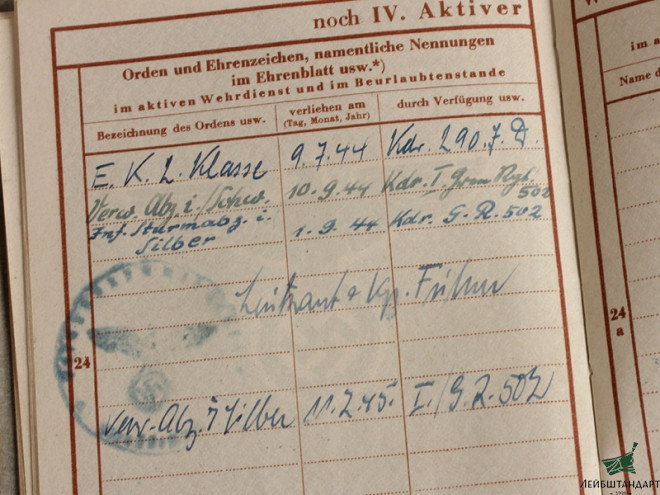 noch IV. Aktiver
Orden und Ehrenzeichen, namentliche Nennungen
im Ehrenblatt usw.*)
im aktiven Wehrdienst und im Beurlaubtenstande
Bezeichnung des Ordens usw. verliehen am (Tag, Monat, Jahr) durch Verfügung usw.
E. K. 2. Klasse 9.7.44 Kdr. 290. J. D.
Verw. Abz. i./Schw. 10.9.44 Kdr. I. Gren. Rgt. 502
Inf. Sturmabz. i. Silber 1.9.44 Kdr. G. R. 502
Leutnant u. Kp. Führer
24
Verw. Abz. i Silber 11.2.45. I./G. R. 502
im a
Name d
24
a
ЛЕЙБШТАНДАРТ